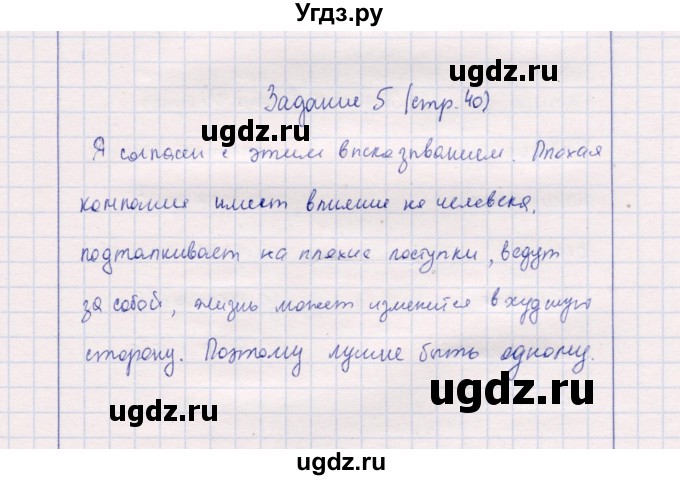 Угдз.ру
Задание 5 (стр. 40)
ugdz.ru
ugdz.ru
Я согласен с этим высказыванием. Плохая
компания имеет влияние на человека,
ugdz.ru
ugdz.ru
подталкивает на плохие поступки, ведут
за собой, жизнь может изменится в худшую
сторону. Поэтому лучше быть одному.
ugdz.ru
ugdz.ru
ugdz.ru